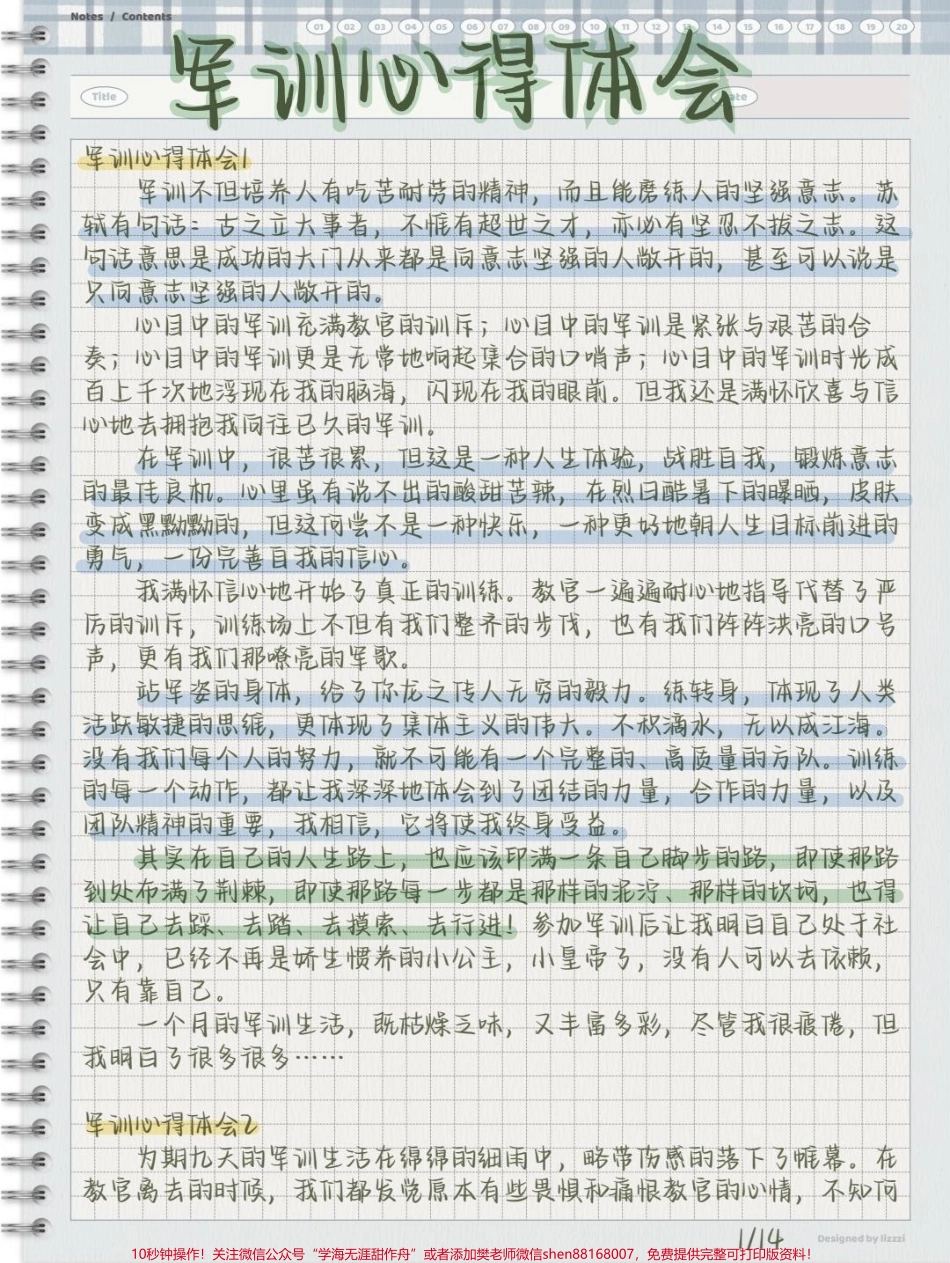 Notes / Contents
01 02 03 04 05 06 07 08 09 10 11 12 13 14 15 16 17 18 19 20
军训心得体会
Title
军训心得体会1
军训不但培养人有吃苦耐劳的精神，而且能磨练人的坚强意志。苏
轼有句话：古之立大事者，不惟有超世之才，亦必有坚忍不拔之志。这
句话意思是成功的大门从来都是向意志坚强的人敞开的，甚至可以说是
只向意志坚强的人敞开的。
心目中的军训充满教官的训斥；心目中的军训是紧张与艰苦的合
奏；心目中的军训更是无常地响起集合的口哨声；心目中的军训时光成
百上千次地浮现在我的脑海，闪现在我的眼前。但我还是满怀欣喜与信
心地去拥抱我向往已久的军训。
在军训中，很苦很累，但这是一种人生体验，战胜自我，锻炼意志
的最佳良机。心里虽有说不出的酸甜苦辣，在烈日酷暑下的曝晒，皮肤
变成黑黝黝的，但这何尝不是一种快乐，一种更好地朝人生目标前进的
勇气，一份完善自我的信心。
我满怀信心地开始了真正的训练。教官一遍遍耐心地指导代替了严
厉的训斥，训练场上不但有我们整齐的步伐，也有我们阵阵洪亮的口号
声，更有我们那嘹亮的军歌。
站军姿的身体，给了你龙之传人无穷的毅力。练转身，体现了人类
活跃敏捷的思维，更体现了集体主义的伟大。不积滴水，无以成江海。
没有我们每个人的努力，就不可能有一个完整的、高质量的方队。训练
的每一个动作，都让我深深地体会到了团结的力量，合作的力量，以及
团队精神的重要，我相信，它将使我终身受益。
其实在自己的人生路上，也应该印满一条自己脚步的路，即使那路
到处布满了荆棘，即使那路每一步都是那样的泥泞、那样的坎坷，也得
让自己去踩、去踏、去摸索、去行进！参加军训后让我明白自己处于社
会中，已经不再是娇生惯养的小公主，小皇帝了，没有人可以去依赖，
只有靠自己。
一个月的军训生活，既枯燥乏味，又丰富多彩，尽管我很疲倦，但
我明白了很多很多……
军训心得体会2
为期九天的军训生活在绵绵的细雨中，略带伤感的落下了帷幕。在
教官离去的时候，我们都发觉原本有些畏惧和痛恨教官的心情，不知何
1/14
Designed by lizzzi
10秒钟操作！关注微信公众号“学海无涯甜作舟”或者添加樊老师微信shen88168007，免费提供完整可打印版资料！